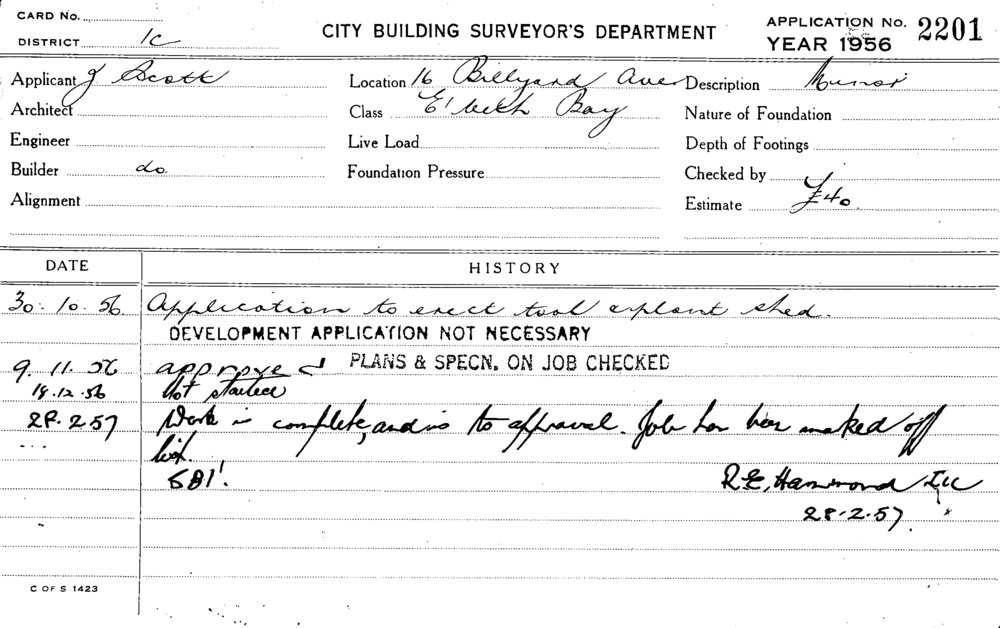 CARD No.
DISTRICT 1C
CITY BUILDING SURVEYOR'S DEPARTMENT
APPLICATION No. 2201
YEAR 1956
Applicant J Scott
Location 16 Billyard Ave
Description Minor
Architect
Class E'beth Bay
Nature of Foundation
Engineer
Live Load
Depth of Footings
Builder do.
Foundation Pressure
Checked by
Alignment
Estimate £40
DATE
HISTORY
30.10.56 Application to erect tool & plant shed.
DEVELOPMENT APPLICATION NOT NECESSARY
9.11.56 approved PLANS & SPECN. ON JOB CHECKED
18.12.56 Not started
28.2.57 Work is complete, and is to approval. Job has been marked off
list.
SBI'.
R.E. Hammond
28.2.57
C OF S 1423